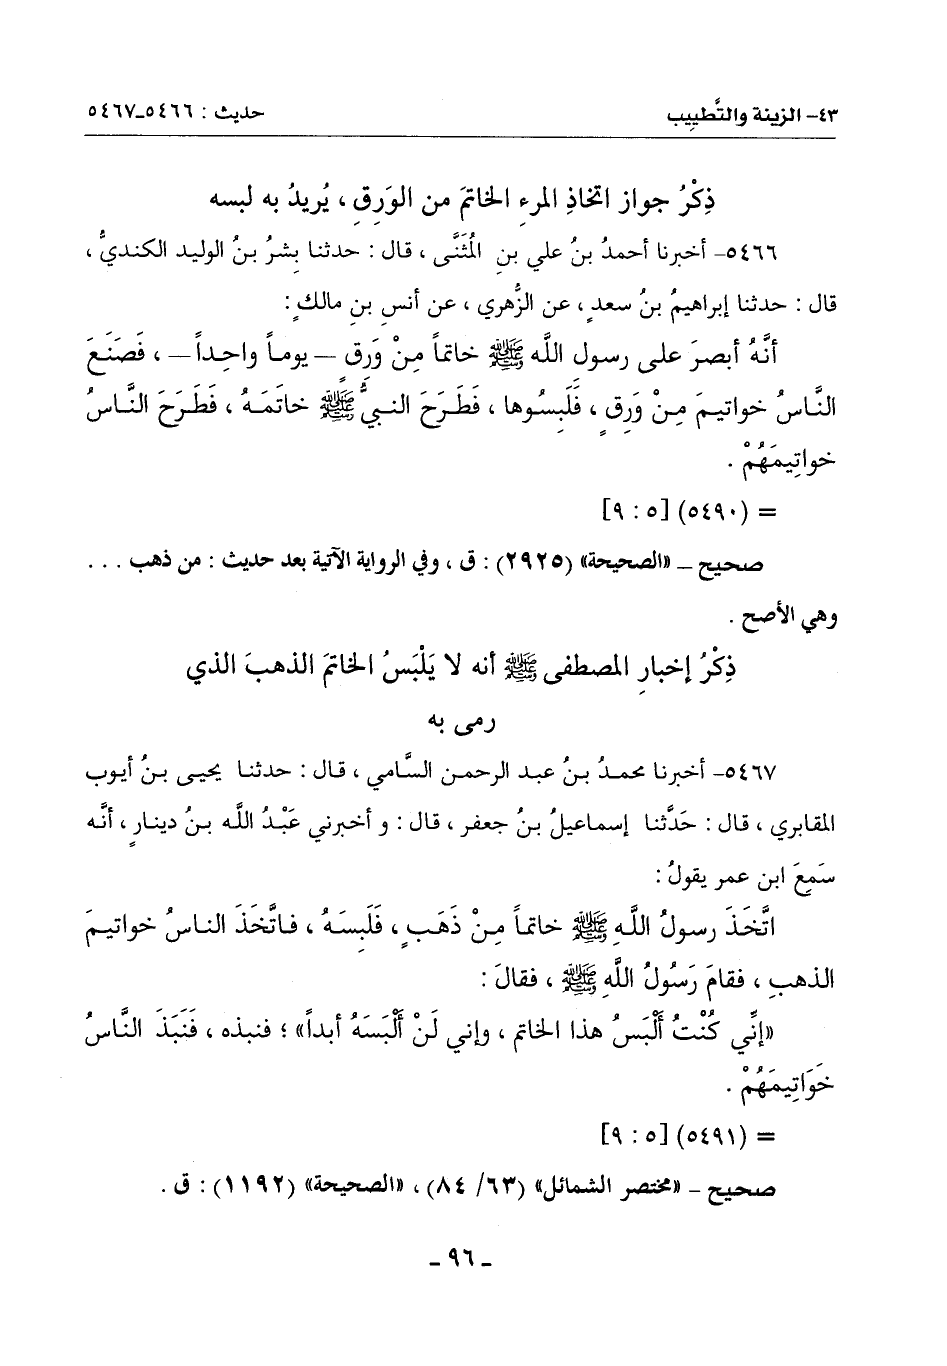 ٤٣- الزينة والتَّطييب حديث : ٥٤٦٦ـ٥٤٦٧
ذِكْرُ جواز اتخاذِ المرءِ الخاتمَ من الوَرِقِ ، يُريدُ به لبسه
٥٤٦٦- أخبرنا أحمدُ بنُ علي بنِ المُثَنَّى ، قال : حدثنا بشرُ بنُ الوليد الكنديُّ ،
قال : حدثنا إبراهيمُ بنُ سعدٍ ، عن الزُّهري ، عن أنسِ بنِ مالكٍ :
أنَّهُ أبصرَ على رسول اللَّه ﷺ خاتماً مِنْ وَرِقٍ – يوماً واحِداً – ، فَصَنَعَ
النَّاسُ خواتيمَ مِنْ وَرِقٍ ، فَلَبِسُوها ، فَطَرَحَ النبيُّ ﷺ خاتَمَهُ ، فَطَرَحَ النَّاسُ
خواتِيمَهُمْ .
= (٥٤٩٠) [٥ : ٩]
صحيح – «الصحيحة» (٢٩٢٥) : ق ، وفي الرواية الآتية بعد حديث : من ذهب . . .
وهي الأصح .
ذِكْرُ إخبارِ المصطفى ﷺ أنه لا يَلْبَسُ الخاتمَ الذهبَ الذي
رمى به
٥٤٦٧- أخبرنا محمدُ بنُ عبد الرحمن السَّامي ، قال : حدثنا يحيى بنُ أيوب
المقابري ، قال : حَدَّثنا إسماعيلُ بنُ جعفر ، قال : و أخبرني عَبْدُ اللَّه بنُ دينارٍ ، أنَّه
سَمِعَ ابن عمر يقولُ :
اتَّخَذَ رسولُ اللَّهِ ﷺ خاتماً مِنْ ذَهَبٍ ، فَلَبِسَهُ ، فاتَّخَذَ الناسُ خواتيمَ
الذهبِ ، فقامَ رَسُولُ اللَّهِ ﷺ ، فقالَ :
«إنِّي كُنْتُ أَلْبَسُ هذا الخاتم ، وإني لَنْ أَلْبَسَهُ أبداً» ؛ فنبذه ، فَنَبَذَ النَّاسُ
خَوَاتِيمَهُمْ .
= (٥٤٩١) [٥ : ٩]
صحيح – «مختصر الشمائل» (٦٣/ ٨٤) ، «الصحيحة» (١١٩٢) : ق .
ـ ٩٦ ـ